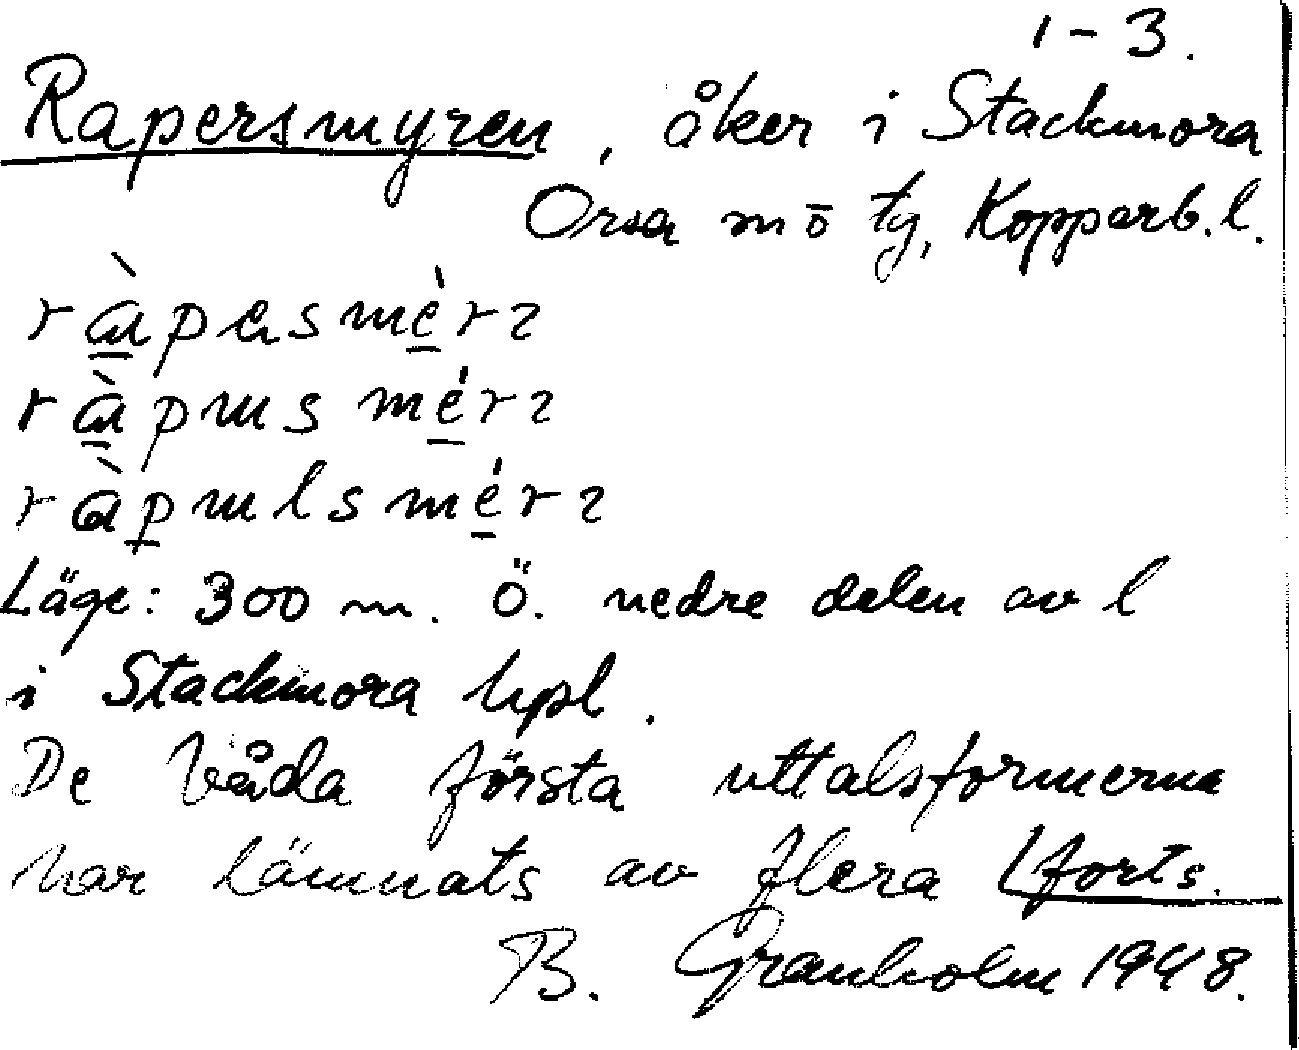 1-3.
Rapersmyren, åker i Stackmora
Orsa mō tg, Kopparb.l.
Läge: 300 m. Ö. nedre delen av l
i Stackmora hpl.
De båda första uttalsformerna
har lämnats av flera (forts.
B. Granholm 1948.